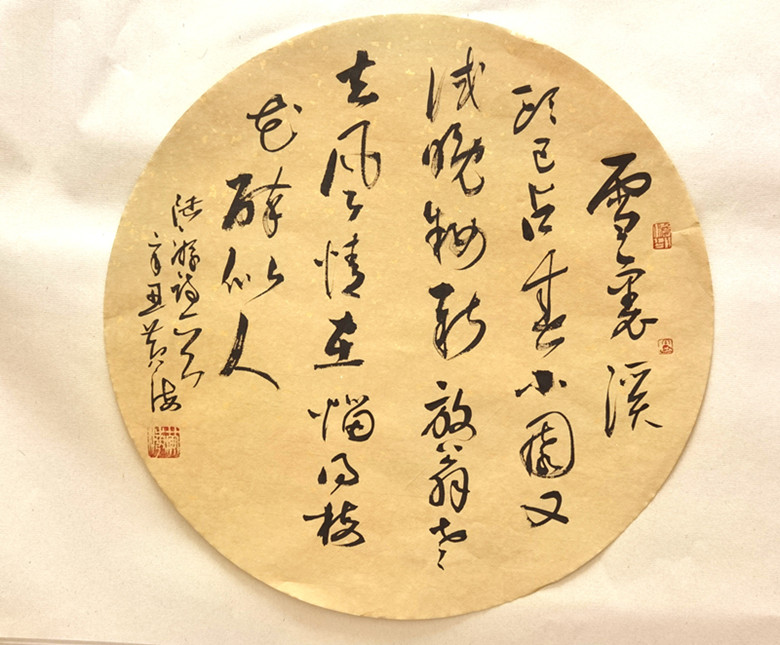 雪裏溪
頭已占春小園又
试晚妝新放翁老
去風情在惱得梅
花醉似人
陆游詩一首
辛丑黄海